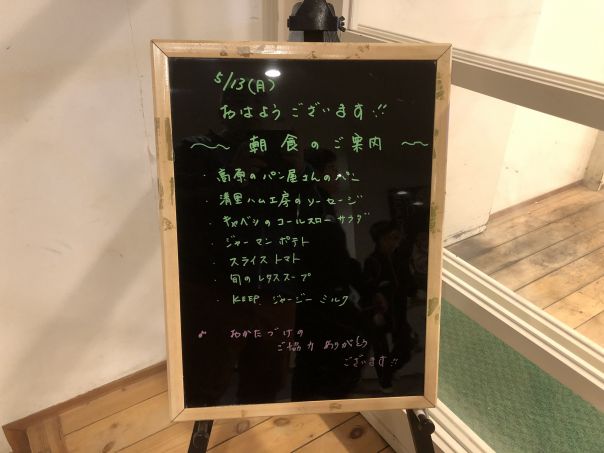 5/13(月)
おはようございます!!
〜 朝食のご案内 〜
・高原のパン屋さんのパン
・清里ハム工房のソーセージ
・キャベツのコールスローサラダ
・ジャーマンポテト
・スライストマト
・旬のレタススープ
・KEEP ジャージーミルク
♪ おかたづけの
ご協力ありがとう
ございます!!